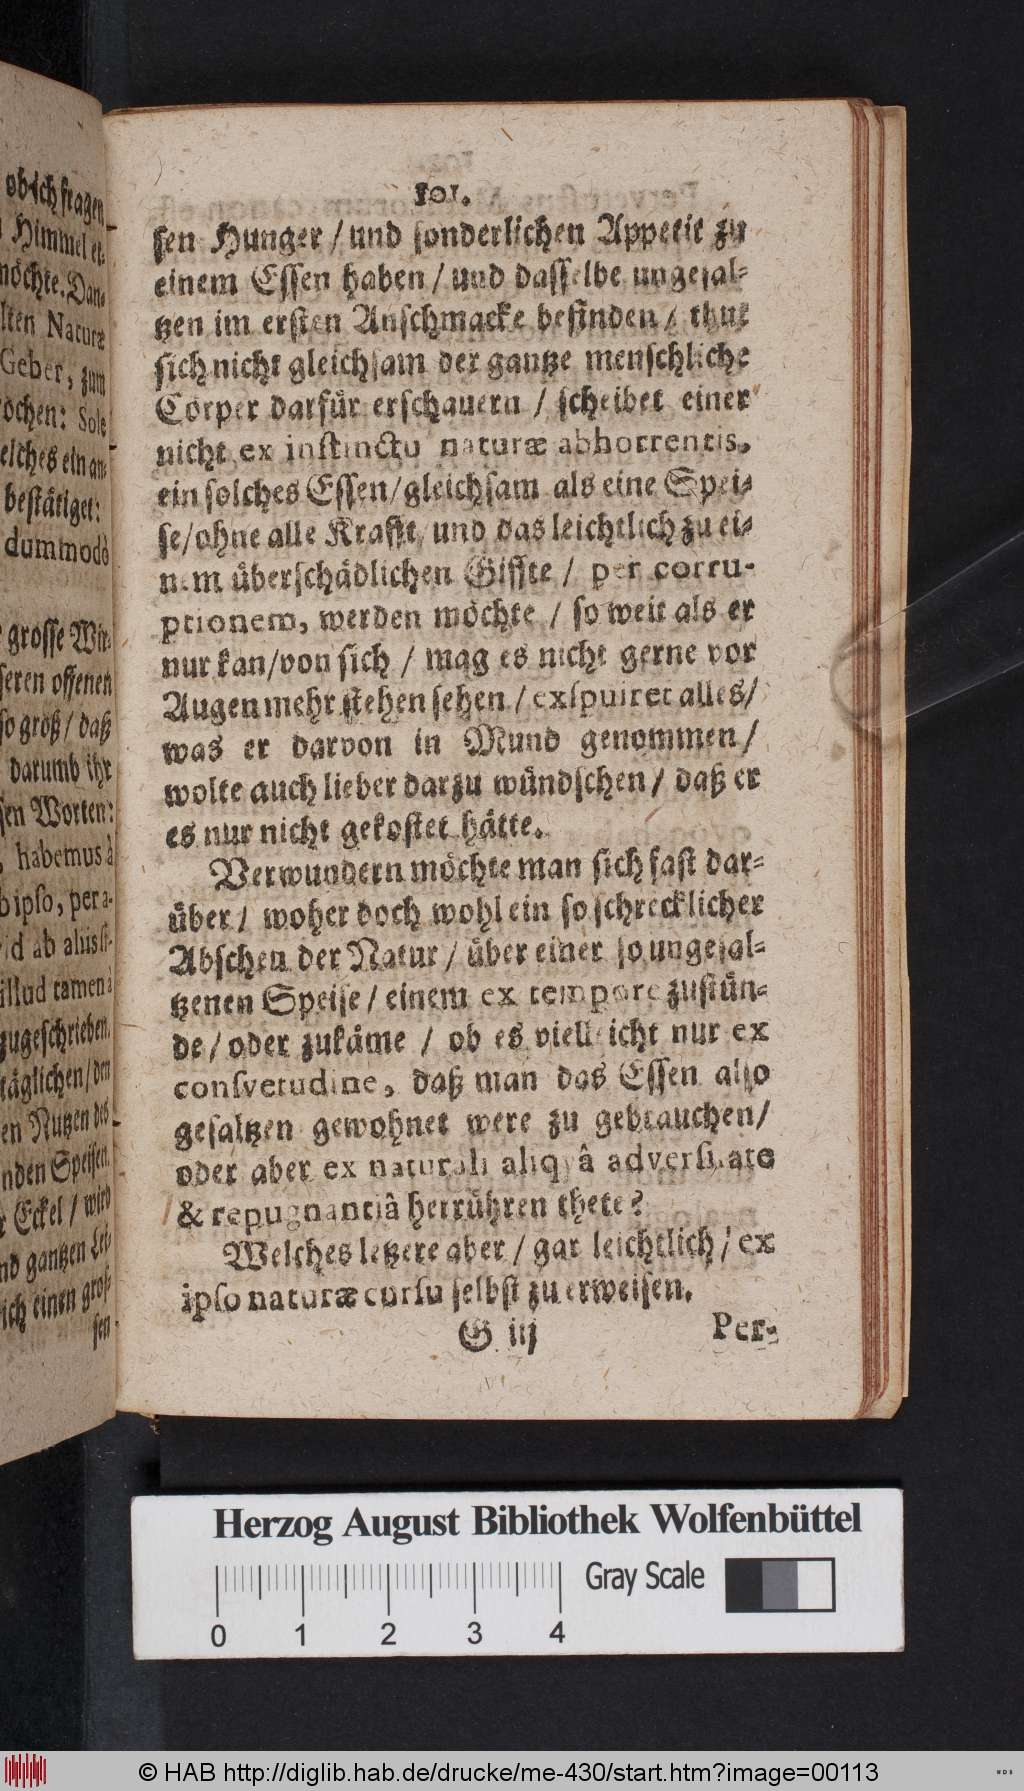 ob ich fragen
Himmel er-
möchte. Dan-
lten Naturæ
Geber, zum
ochen: Sole
elches ein an-
bestätiget:
dummodò
grosse Wir-
seren offenen
so groß / daß
darumb ihr
sen Worten:
, habemus à
b ipso, per a-
id ab aliis si-
illud tamen à
zugeschrieben.
täglichen / den
en Nutzen des
nden Speisen.
r Eckel / wird
nd gantzen Lei-
ich einen gros-
sen
101.
sen Hunger / und sonderlichen Appetit zu
einem Essen haben / und dasselbe ungesal-
tzen im ersten Anschmacke befinden / thut
sich nicht gleichsam der gantze menschliche
Cörper darfür erschauern / scheibet einer
nicht ex instinctu naturæ abhorrentis,
ein solches Essen / gleichsam als eine Spei-
se / ohne alle Krafft / und das leichtlich zu ei-
nem überschädlichen Giffte / per corru-
ptionem, werden möchte / so weit als er
nur kan / von sich / mag es nicht gerne vor
Augen mehr stehen sehen / exspuiret alles /
was er darvon in Mund genommen /
wolte auch lieber darzu wündschen / daß er
es nur nicht gekostet hätte.
Verwundern möchte man sich fast dar-
über / woher doch wohl ein so schrecklicher
Abscheu der Natur / über einer so ungesal-
tzenen Speise / einem ex tempore zustün-
de / oder zukäme / ob es vielleicht nur ex
consvetudine, daß man das Essen also
gesaltzen gewohnet were zu gebrauchen /
oder aber ex naturali aliqvâ adversitate
& repugnantiâ herrühren thete?
Welches letzere aber / gar leichtlich / ex
ipso naturæ cursu selbst zu erweisen.
G iij Per-
Herzog August Bibliothek Wolfenbüttel
Gray Scale
0 1 2 3 4
© HAB http://diglib.hab.de/drucke/me-430/start.htm?image=00113